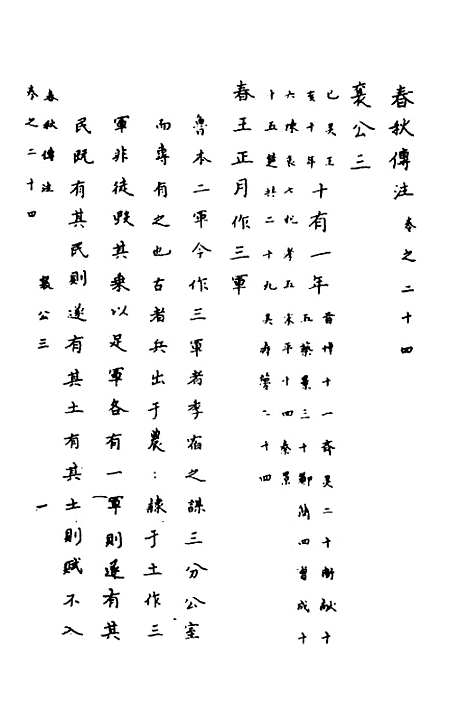 春秋傳注 卷之二十四
襄公三
十有一年 晉悼十一 齊靈二十 衛獻十
五 蔡景三十 鄭簡四 曹成十
六 陳哀七 杞孝五 宋平十四 秦景
十五 楚共二十九 吳壽夢二十四
春王正月作三軍
魯本二軍今作三軍者季宿之謀三分公室
而專有之也古者兵出于農:隸于土作三
軍非徒毀其乘以足軍各有一軍則遂有其
民既有其民則遂有其土有其土則賦不入
春秋傳注
卷之二十四 襄公三 一